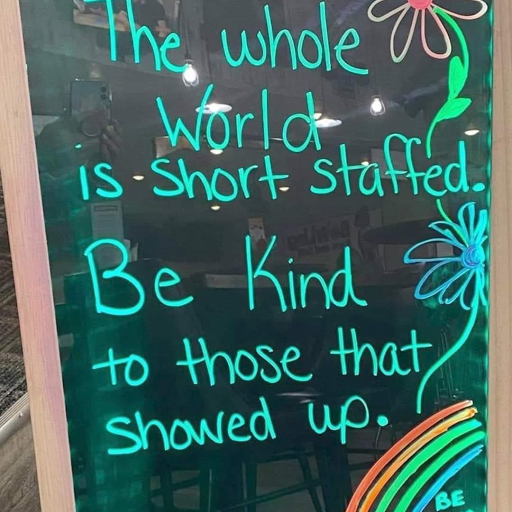 The whole
World
is short staffed.
Be Kind
to those that
showed up.
BE